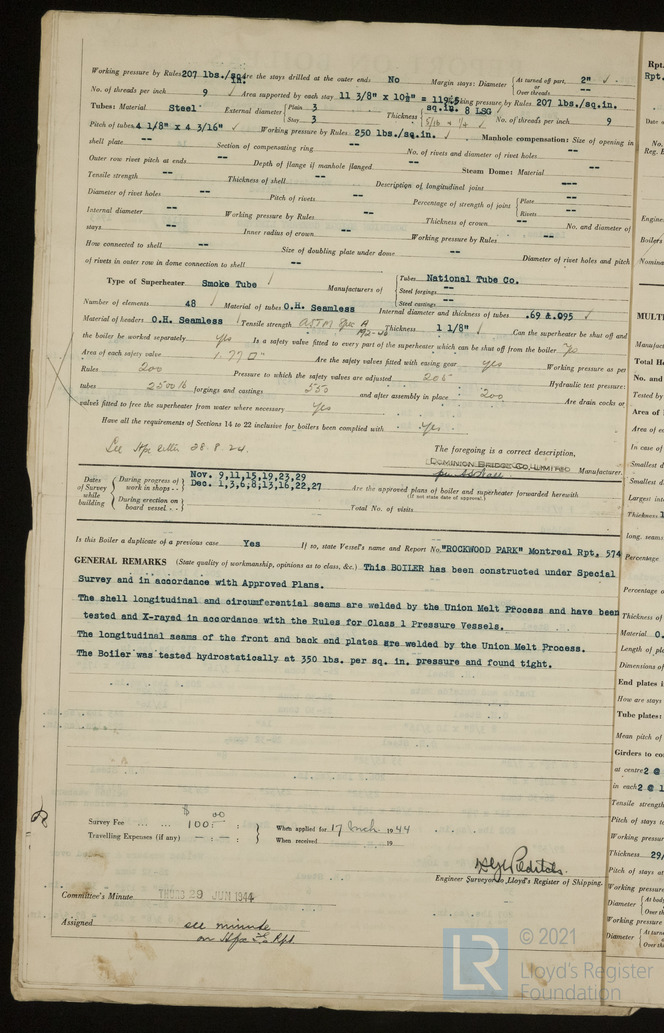 Working pressure by Rules 207 lbs./sq.in. Are the stays drilled at the outer ends No Margin stays: Diameter { At turned off part, or Over threads 2" ✓ --
No. of threads per inch 9 ✓ Area supported by each stay 11 3/8" x 10½" = 119.5 sq.in. Working pressure by Rules 207 lbs./sq.in.
Tubes: Material Steel External diameter { Plain 3 Stay 3 Thickness { 8 LSG 5/16 & 1/4 ✓ No. of threads per inch 9
Pitch of tubes 4 1/8" x 4 3/16" ✓ Working pressure by Rules 250 lbs/sq.in. ✓ Manhole compensation: Size of opening in
shell plate -- Section of compensating ring -- No. of rivets and diameter of rivet holes --
Outer row rivet pitch at ends -- Depth of flange if manhole flanged -- Steam Dome: Material --
Tensile strength -- Thickness of shell -- Description of longitudinal joint --
Diameter of rivet holes -- Pitch of rivets -- Percentage of strength of joint { Plate -- Rivets --
Internal diameter -- Working pressure by Rules -- Thickness of crown -- No. and diameter of
stays -- Inner radius of crown -- Working pressure by Rules --
How connected to shell -- Size of doubling plate under dome -- Diameter of rivet holes and pitch
of rivets in outer row in dome connection to shell --
Type of Superheater Smoke Tube ✓ Manufacturers of { Tubes National Tube Co. Steel forgings -- Steel castings --
Number of elements 48 ✓ Material of tubes O.H. Seamless Internal diameter and thickness of tubes .69 & .095 ✓
Material of headers O.H. Seamless Tensile strength ASTM Spec A 192-40 Thickness 1 1/8" ✓ Can the superheater be shut off and
the boiler be worked separately yes Is a safety valve fitted to every part of the superheater which can be shut off from the boiler yes
Area of each safety valve 1.77 □" Are the safety valves fitted with easing gear yes Working pressure as per
Rules 200 Pressure to which the safety valves are adjusted 205 Hydraulic test pressure:
tubes 2500 lb forgings and castings 550 and after assembly in place 200 Are drain cocks or
valves fitted to free the superheater from water where necessary Yes
Have all the requirements of Sections 14 to 22 inclusive for boilers been complied with Yes.
See Hfx letter 28.8.24.
The foregoing is a correct description,
DOMINION BRIDGE CO. LIMITED Manufacturer.
Dates of Survey while building { During progress of work in shops - - Nov. 9,11,15,19,23,29 Dec. 1,3,6,8,13,16,22,27
During erection on board vessel - - -
Are the approved plans of boiler and superheater forwarded herewith
(If not state date of approval.)
Total No. of visits
Is this Boiler a duplicate of a previous case Yes If so, state Vessel's name and Report No. "ROCKWOOD PARK" Montreal Rpt. 574
GENERAL REMARKS (State quality of workmanship, opinions as to class, &c.) This BOILER has been constructed under Special
Survey and in accordance with Approved Plans.
The shell longitudinal and circumferential seams are welded by the Union Melt Process and have been
tested and X-rayed in accordance with the Rules for Class 1 Pressure Vessels.
The longitudinal seams of the front and back end plates are welded by the Union Melt Process.
The Boiler was tested hydrostatically at 350 lbs. per sq. in. pressure and found tight.
Survey Fee ... ... $ 100:00 : } When applied for 17 Mch 1944
Travelling Expenses (if any) - : - : When received 19
Engineer Surveyor to Lloyd's Register of Shipping.
Committee's Minute THURS 29 JUN 1944
Assigned see minute
on Hfx F.E. Rpt.
© 2021
LR Lloyd's Register
Foundation